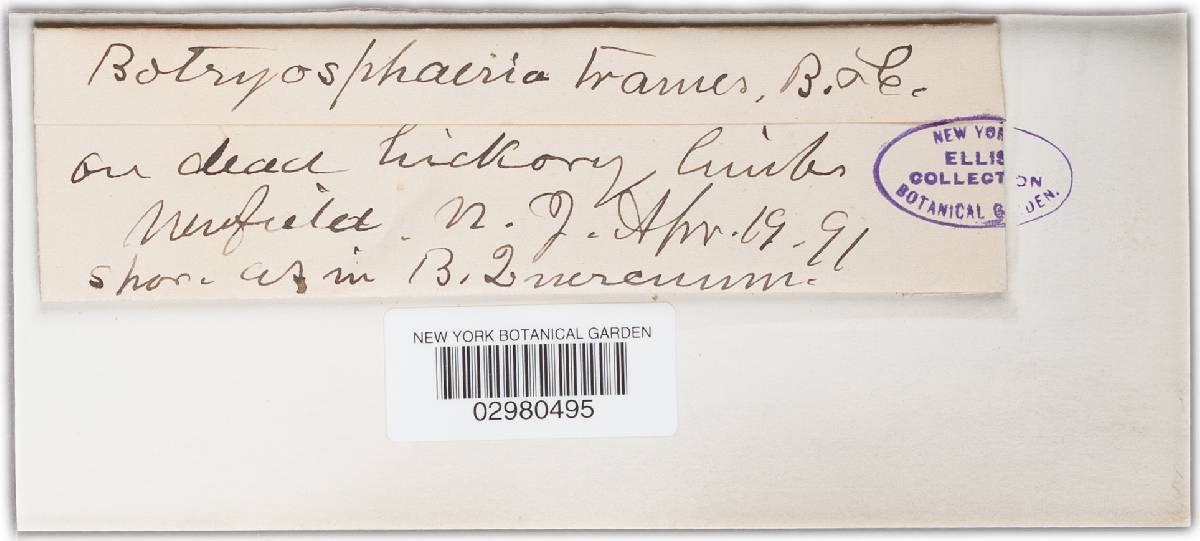 Botryosphaeria trames, B. & C.
on dead hickory limbs
Newfield, N. J. Apr. 19. 91
spor. as in B. Quercuum.
NEW YOR
ELLIS
COLLECTION
BOTANICAL G DEN.
NEW YORK BOTANICAL GARDEN
02980495